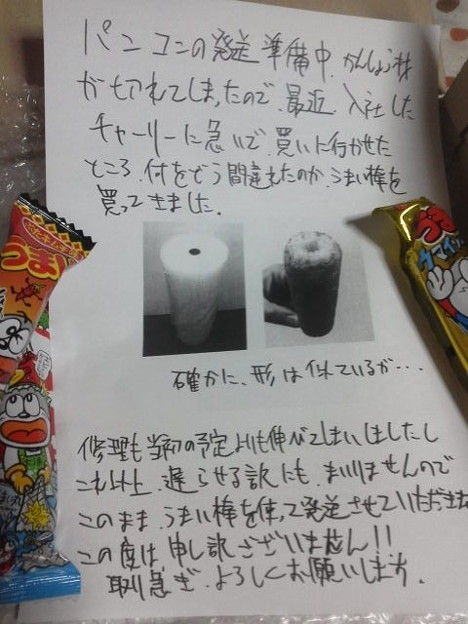 パソコンの発送準備中、かんしょう材
が切れてしまったので、最近入社した
チャーリーに急いで、買いに行かせた
ところ、何をどう間違えたのか、うまい棒を
買ってきました。
確かに、形は似ているが…
修理も当初の予定よりも伸びてしまいしましたし
これ以上、遅らせる訳にも、まいりませんので
このまま、うまい棒を使って発送させていただきま
この度は、申し訳ございません!!
取り急ぎ、よろしくお願いします。
うまい